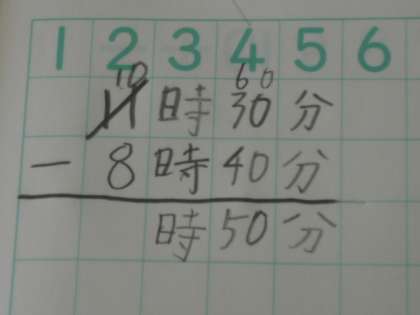 1 2 3 4 5 6
10 60
11時30分
－8時40分
時50分